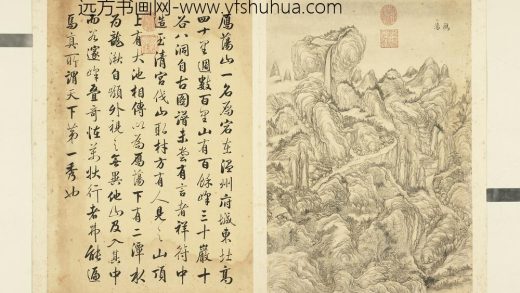 远方书画网-www.yfshuhua.com
鴈蕩
鴈蕩山一名鴈宕在溫州府城東北高
四十里週數百里山有百餘峰三十巖十
谷八洞自古圖諜未嘗有言者祥符中
造玉清宮伐山取材方有人見之山頂
上有大池相傳以為鴈蕩下有二潭水
為龍湫自嶺外視之無異他山及入其中
而谷邃峰叠奇怪萬狀行者弗能遍
焉真所謂天下第一秀也